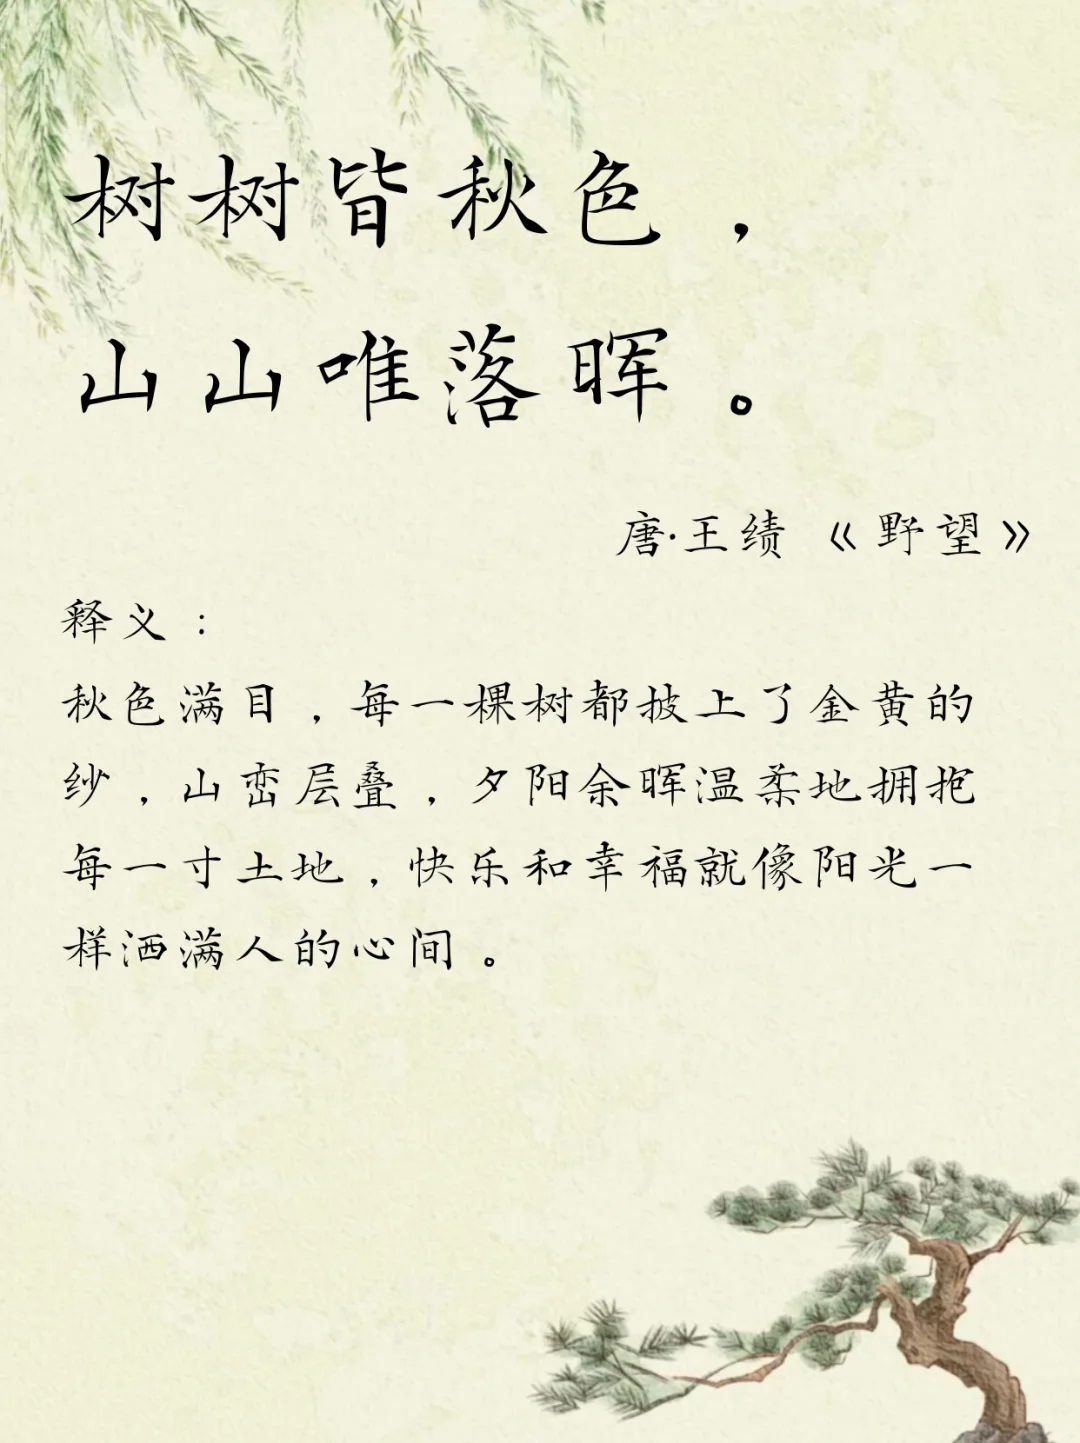 树树皆秋色，
山山唯落晖。
唐·王绩《野望》
释义：
秋色满目，每一棵树都披上了金黄的
纱，山峦层叠，夕阳余晖温柔地拥抱
每一寸土地，快乐和幸福就像阳光一
样洒满人的心间。